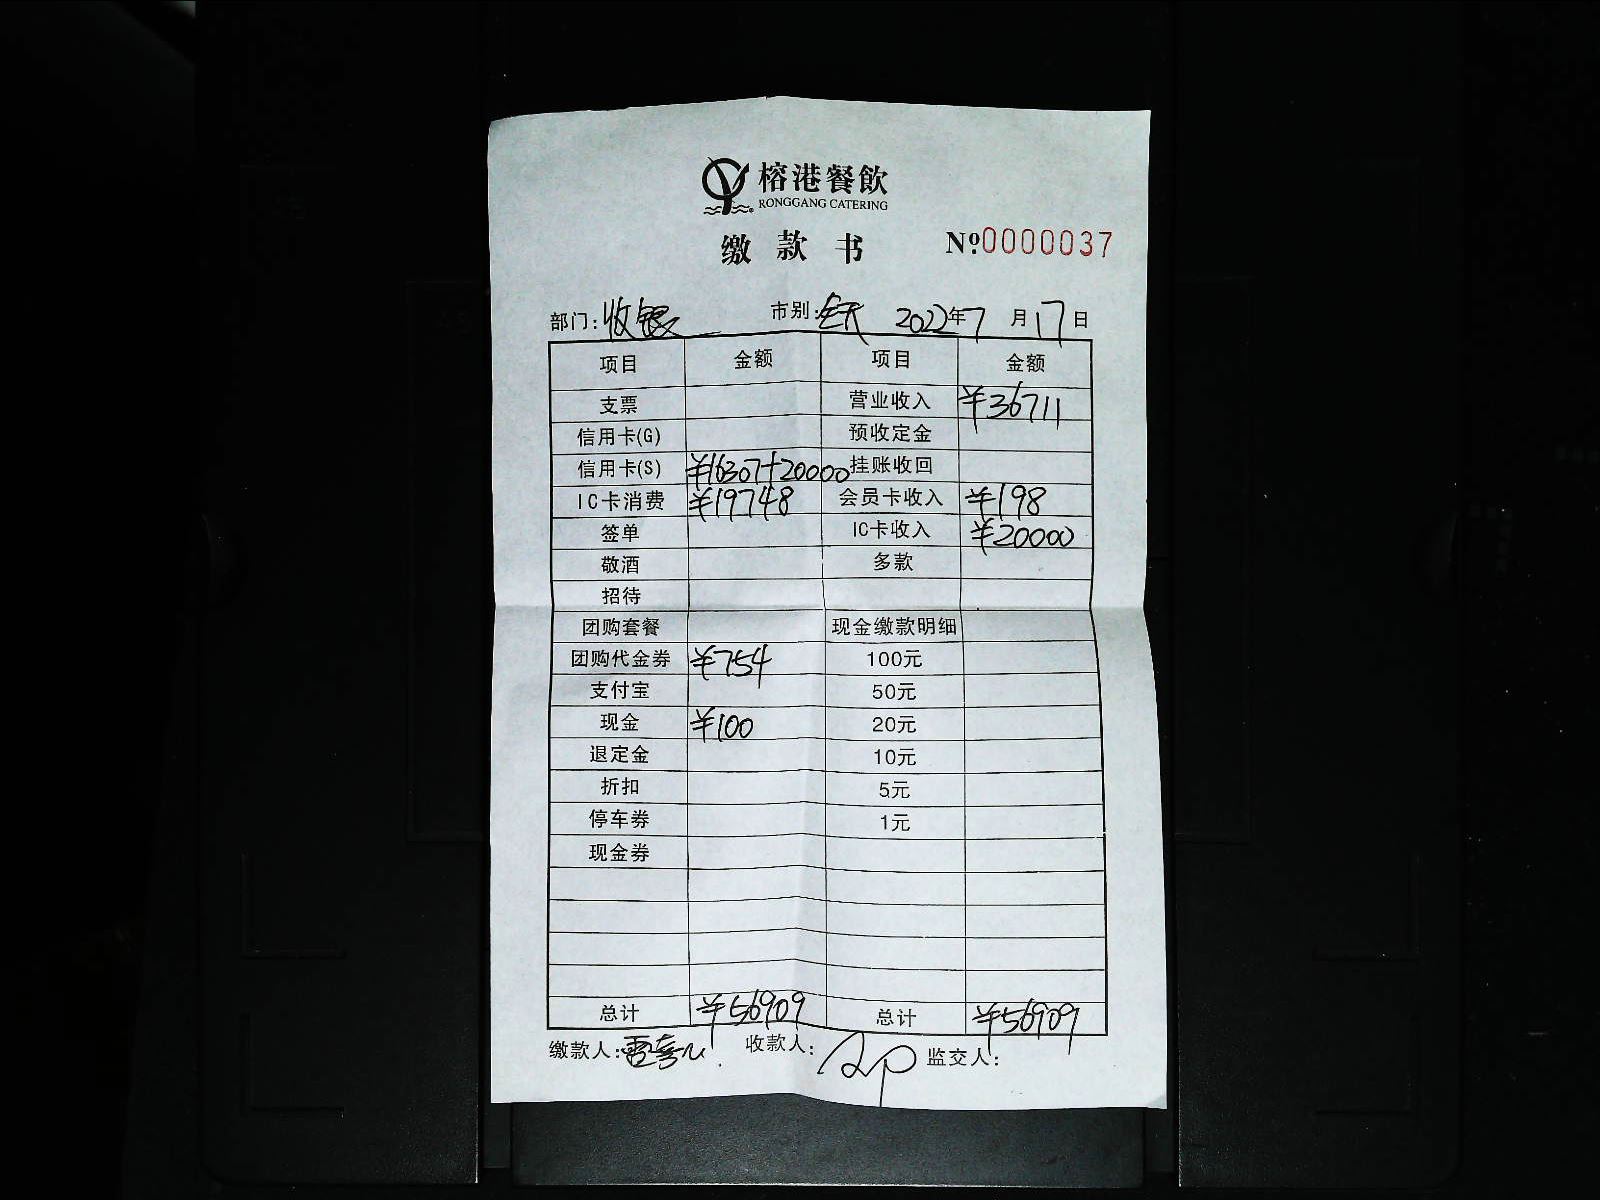 榕港餐飲
RONGGANG CATERING
缴款书 №0000037
部门：收银 市别：全天 2022年7月17日
项目 金额 项目 金额
支票 营业收入 ¥36711
信用卡(G) 预收定金
信用卡(S) ¥16307+20000 挂账收回
IC卡消费 ¥19748 会员卡收入 ¥198
签单 IC卡收入 ¥20000
敬酒 多款
招待
团购套餐 现金缴款明细
团购代金券 ¥754 100元
支付宝 50元
现金 ¥100 20元
退定金 10元
折扣 5元
停车券 1元
现金券
总计 ¥56909 总计 ¥56909
缴款人： 收款人： 监交人：